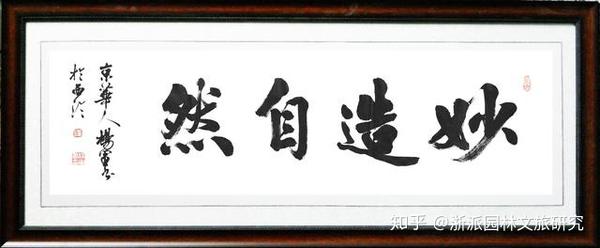 妙造自然
京華人楊
知乎 @浙派园林文旅研究